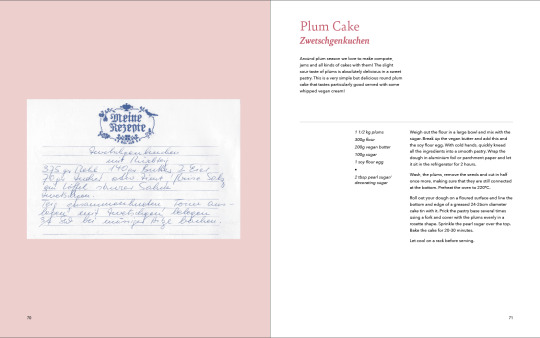 Meine
Rezepte
Zwetschgenkuchen
mit Mürbteig
70
Plum Cake
Zwetschgenkuchen
Around plum season we love to make compote,
jams and all kinds of cakes with them! The slight
sour taste of plums is absolutely delicious in a sweet
pastry. This is a very simple but delicious round plum
cake that tastes particularly good served with some
whipped vegan cream!
1 1/2 kg plums
300g flour
200g vegan butter
100g sugar
1 soy flour egg
•
2 tbsp pearl sugar/
decorating sugar
Weigh out the flour in a large bowl and mix with the
sugar. Break up the vegan butter and add this and
the soy flour egg. With cold hands, quickly knead
all the ingredients into a smooth pastry. Wrap the
dough in aluminium foil or parchment paper and let
it sit in the refrigerator for 2 hours.
Wash, the plums, remove the seeds and cut in half
once more, making sure that they are still connected
at the bottom. Preheat the oven to 220°C.
Roll out your dough on a floured surface and line the
bottom and edge of a greased 24-26cm diameter
cake tin with it. Prick the pastry base several times
using a fork and cover with the plums evenly in a
rosette shape. Sprinkle the pearl sugar over the top.
Bake the cake for 20-30 minutes.
Let cool on a rack before serving.
71